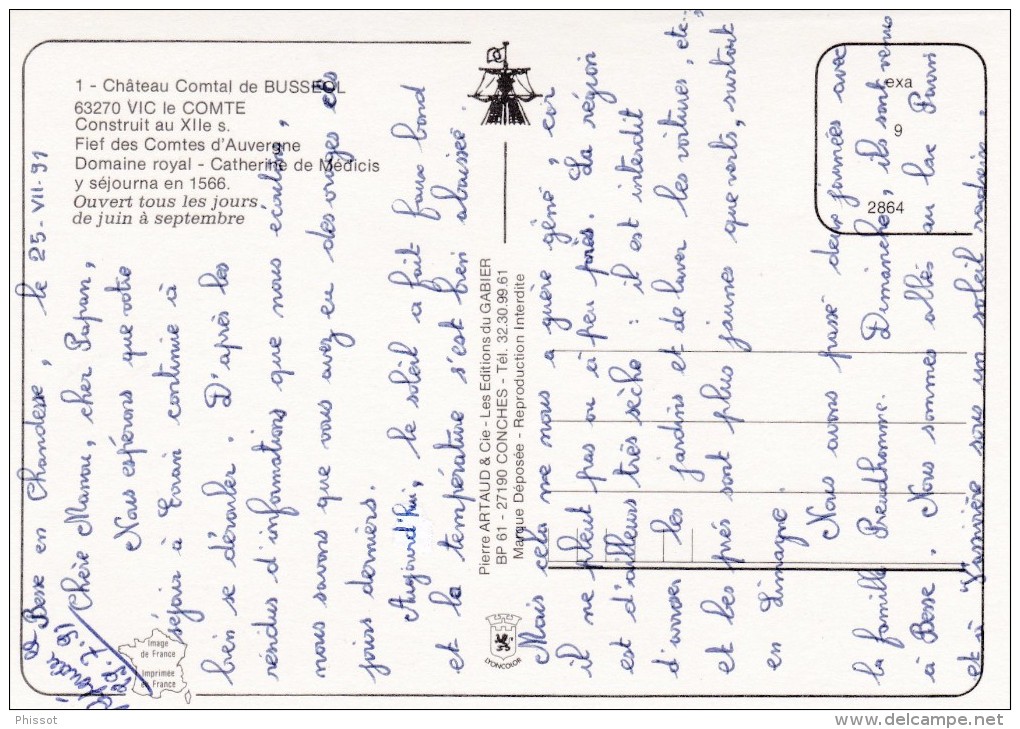 1 - Château Comtal de BUSSEOL
63270 VIC le COMTE
Construit au XIIe s.
Fief des Comtes d'Auvergne
Domaine royal - Catherine de Médicis
y séjourna en 1566.
Ouvert tous les jours
de juin à septembre
exa
9
2864
Pierre ARTAUD & Cie - Les Editions du GABIER
BP 61 - 27190 CONCHES - Tél. 32.30.99.61
Marque Déposée - Reproduction Interdite
LYONCOLOR
Image
de France
Imprimée
en France
Besse en Chandesse, le 25-VII-91
Chère Mamou, cher Papan,
Nous espérons que votre
séjour à continue à
bien se dérouler. D'après les
rendus d'informations que nous écoutons,
nous savons que vous avez eu des orages ces
jours derniers.
Aujourd'hui, le soleil a fait faux bond
et la température s'est bien abaissée
Mais cela ne nous a guère gêné, car
il ne pleut pas ou à peu près. La région
est d'ailleurs très sèche : il est interdit
d'arroser les jardins et de laver les voitures, etc...,
et les prés sont plus jaunes que verts, surtout
en Limagne.
Nous avons passé deux journées avec
la famille Preudhomme. Dimanche, ils sont venus
à Besse. Nous sommes allés au lac Pavin
et à Vassivière sous un soleil radieux.
Phissot
www.delcampe.net